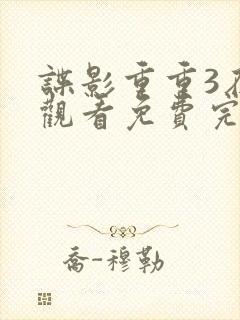 諜影重重3
觀看免費完
喬-穆勒